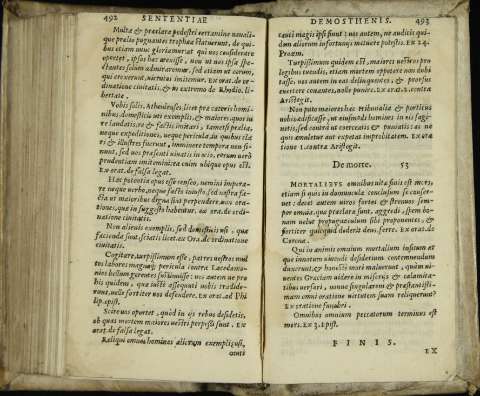 492 SENTENTIAE
Multa & præclara pedestri terraque nauali-
que prælio pugnantes trophæa statuerunt, de qui-
bus etiam nunc gloriamur: at quos considerare
oportet, ipsos hæc erexisse, non ut nos ipsa spe-
ctantes solum admiraremur, sed etiam ut eorum,
qui erexerunt, uirtutes imitemur. Ex orat. de or-
dinatione ciuitatis, & in extremo de Rhodio. li-
bertate.
Vobis solis, Athenienses, licet præ cæteris homi-
nibus, domesticis uti exemplis, & maiores, quos iu-
re laudatis, re & factis imitari,
neque expeditiones, neque pericula in quibus illi
& illustres fuerunt, imminere tempora non si-
nunt, sed uos presenti uitatis in otio, eorum uerò
prudentiam imitemini: ea enim ubique opus est.
Ex orat. de falsa legat.
Hæc potentia opus esse censeo, nemini impera-
re neque uerbo, neque facto iniusto, sed uestra fa-
cta ut maioribus digna sint perpendere, non ora-
tiones, quæ in suggesto habentur. ex ora. de ordi-
natione ciuitatis.
Non alienis exemplis, sed domesticis usi, quæ
facienda sunt, sciatis licet. ex Ora. de ordinatione
ciuitatis.
Cogitare, turpissimum esse, patres nostros mul-
tos labores magnaque pericula contra Lacedæmo-
nios bellum gerentes subiuisse: uos autem ne pro
his quidem, quæ iustè assequuti uobis tradide-
runt, uelle fortiter nos defendere. Ex orat. ad Phi
lip. epist.
Scire uos oportet, quòd in ijs rebus desidetis,
ob quas mortem maiores uestri perpessi sunt. Ex
orat. de falsa legat.
Reliqui omnes homines aliorum exemplis usi,
cauti
DEMOSTHENIS. 493
cauti magis ipsi sunt: uos autem, ne auditis qui-
dem aliorum infortunijs metuere potestis. Ex 24.
Proœm.
Turpissimum quidem est, maiores uestros pro
legibus tuendis, etiam mortem oppetere non dubi
tasse: uos autem in eas delinquentes, & prorsus
euertere conantes, nolle punire. Ex orat. 2. contra
Aristogit.
Non puto maiores hæc tribunalia & porticus
uobis ædificasse, ut eiusmodi homines in eis sagi-
netis, sed contra ut exerceatis & puniatis: ac ne
quis æmuletur aut expetat improbitatem. Ex ora
tione 1. contra Aristogit.
De morte. 53
MORTALIBUS omnibus uitæ finis est mors,
etiam si quis in domuncula conclusum se conser-
uet: decet autem uiros fortes & strenuos sem-
per omnia, quæ præclara sunt, aggredi, spem bo-
nam uelut propugnaculum sibi proponentes, &
fortiter quicquid dederit deus, ferre. Ex orat. de
Corona.
Qui in animis omnium mortalium insitum at
que innatum uiuendi desiderium contemnendum
duxerunt, & honestè mori maluerunt, quàm ui-
uentes Græciam uidere in miserijs & calamita-
tibus uersari, nonne singularem & præstantissi-
mam omni oratione uirtutem suam reliquerunt?
Ex oratione funebri.
Omnibus omnium peccatorum terminus est
mors. Ex 3. Epist.
FINIS.
EX